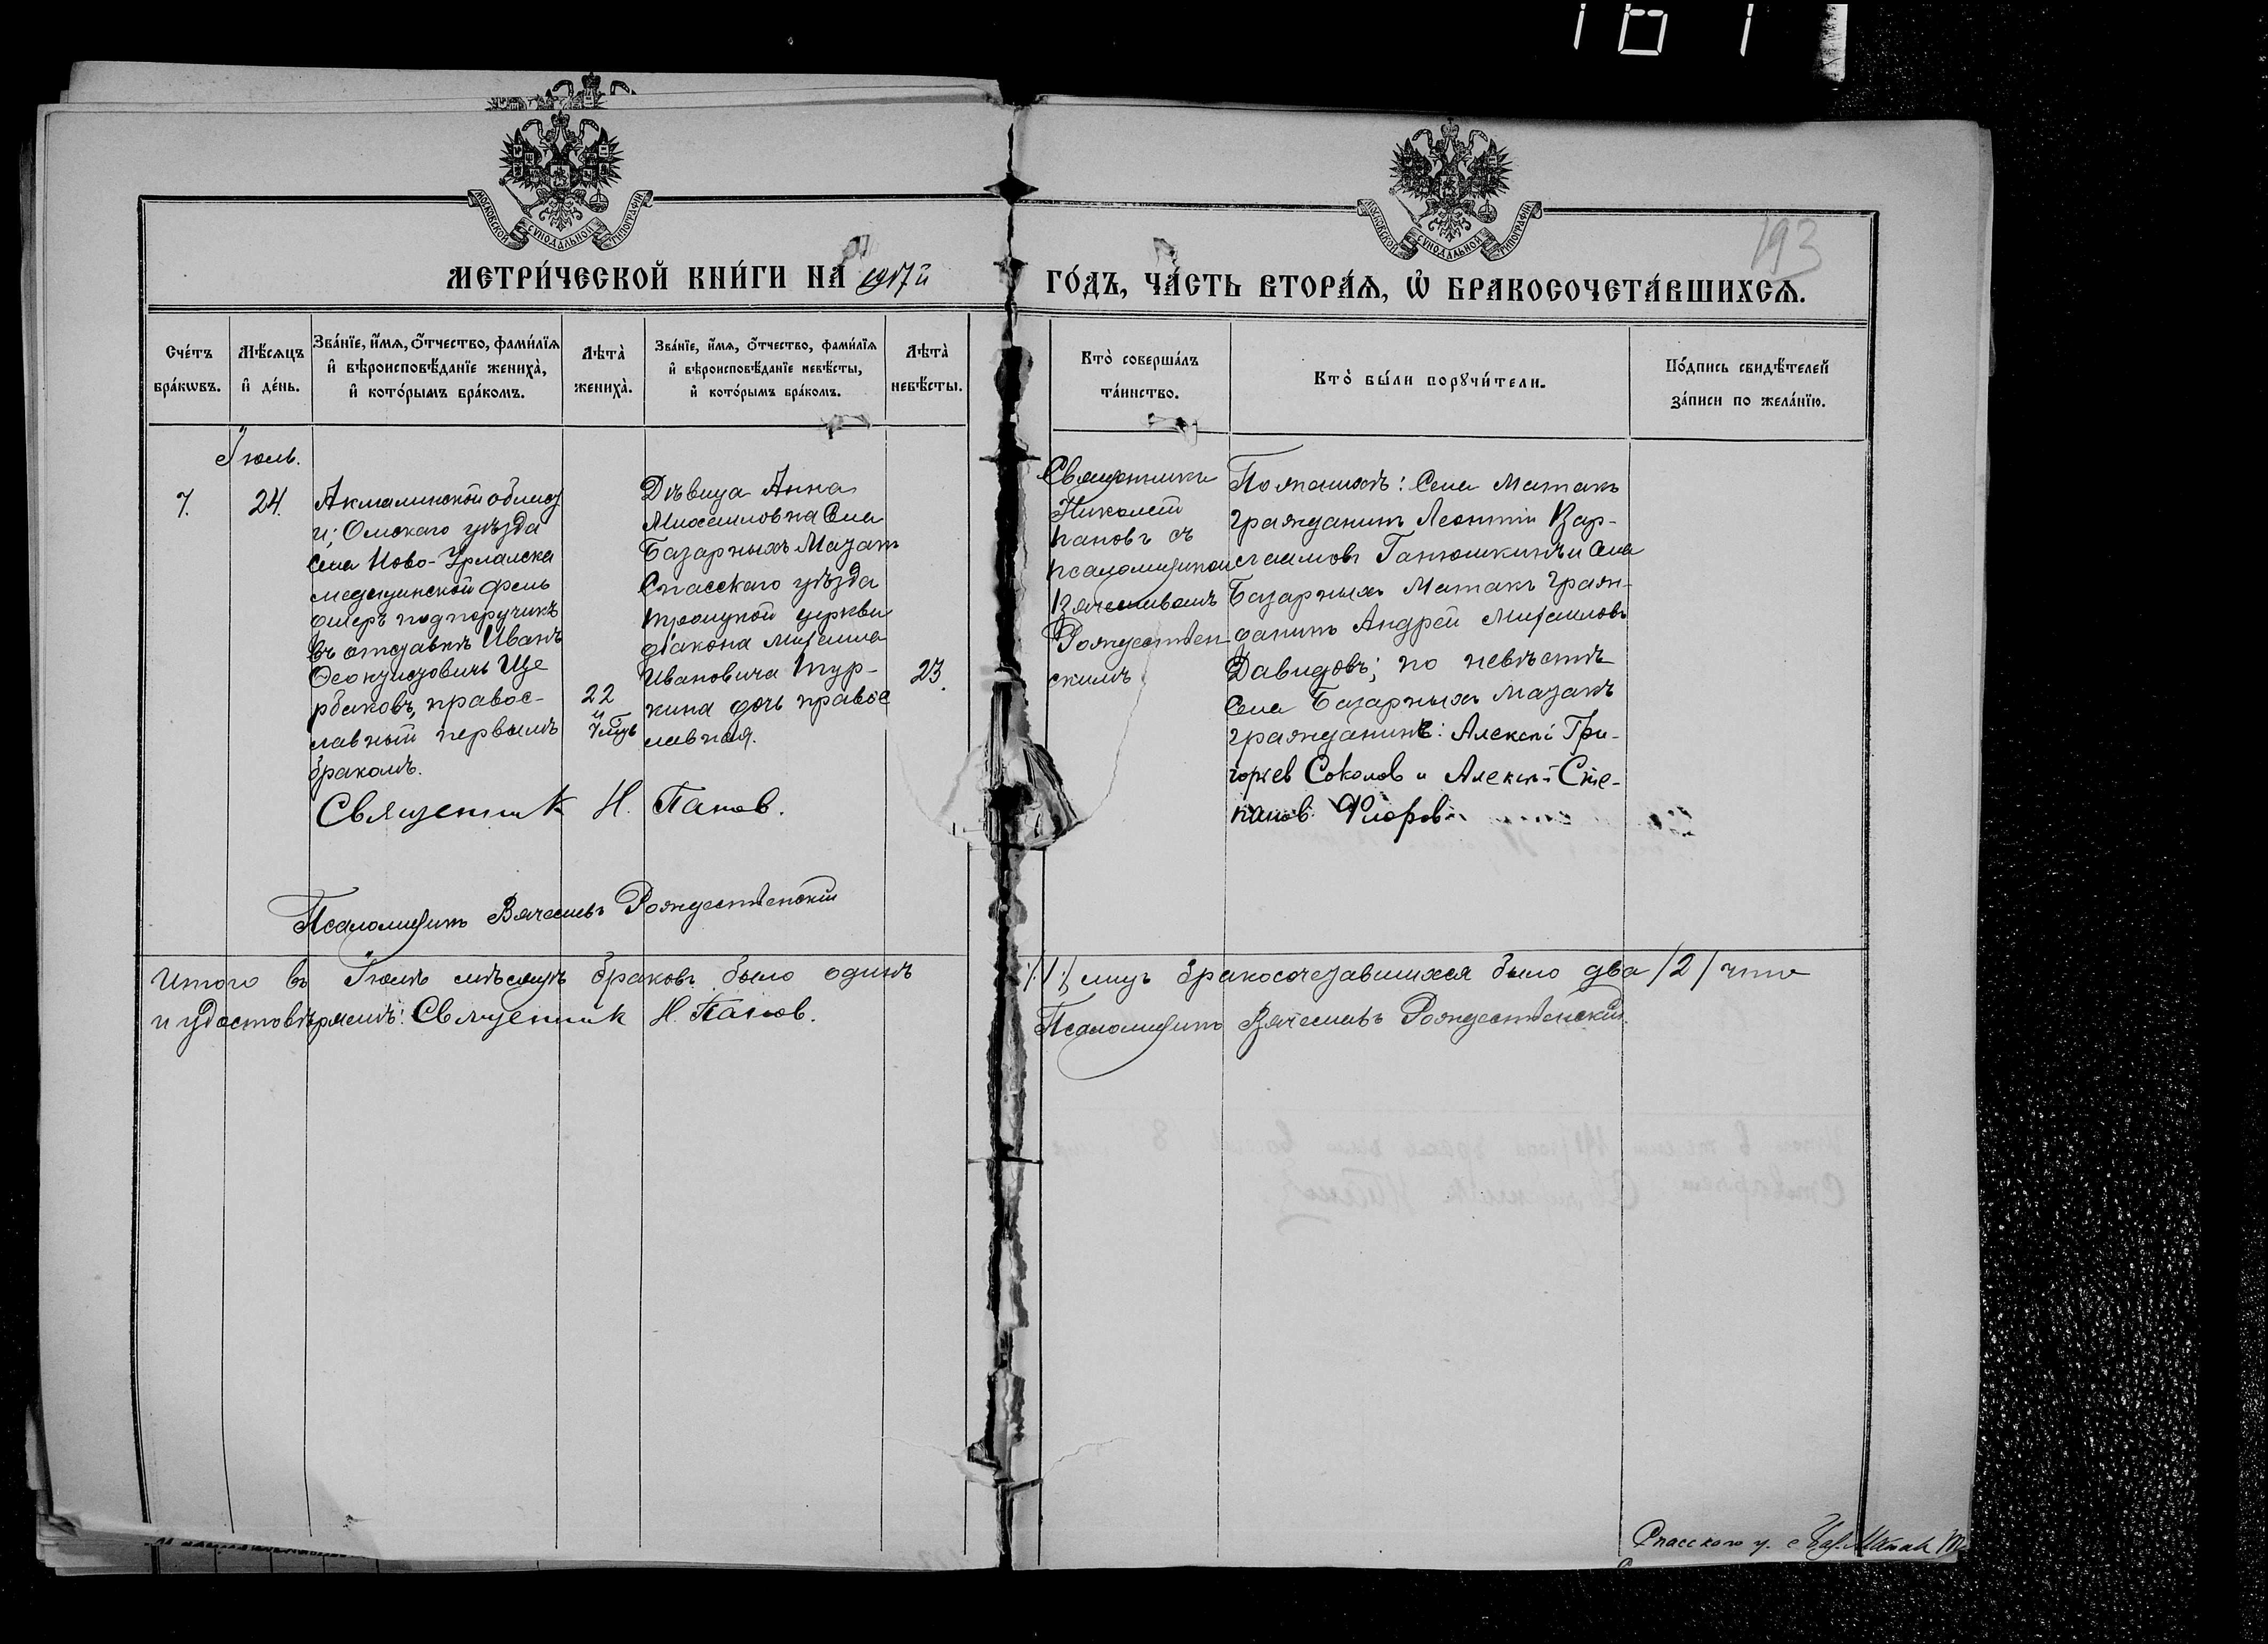 161
МОСКОВСКОЙ СѴНОДАЛЬНОЙ ТИПОГРАФІИ
МОСКОВСКОЙ СѴНОДАЛЬНОЙ ТИПОГРАФІИ
193
МЕТРИ́ЧЕСКОЙ КНИ́ГИ НА 1917й ГО́ДЪ, ЧА́СТЬ ВТОРА́Ѧ, Ѡ҆ БРАКОСОЧЕТА́ВШИХСѦ.
Сче́тъ
бра́кѡвъ.
Мѣ́сѧцъ
и҆ де́нь.
Зва́нїе, и҆́мѧ, ѻ҆́тчество, фами́лїѧ
и҆ вѣроисповѣ́данїе жениха̀,
и҆ кото́рымъ бра́комъ.
Лѣта̀
жениха̀.
Зва́нїе, и҆́мѧ, ѻ҆́тчество, фами́лїѧ
и҆ вѣроисповѣ́данїе невѣ́сты,
и҆ кото́рымъ бра́комъ.
Лѣта̀
невѣ́сты.
Кто̀ соверша́лъ
та́инство.
Кто̀ бы́ли порꙋчи́тели.
По́дпись свидѣ́телей
за́писи по жела́нїю.
Іюль.
7.
24.
Акмолинской област
и; Омскаго уѣзда
села Ново-Уральска
медицинской фель
дшеръ подпоручикъ
въ отставкѣ Иванъ
Ѳеоктистовичъ Ще
рбаковъ, правос-
лавный первымъ
бракомъ.
22
и
7 мѣс
Дѣвица Анна
Михаиловна Села
Базарныхъ Матакъ
Спасскаго уѣзда
троицкой церкви
діакона Михаила
Ивановича Тур-
кина дочь правос
лавная.
23.
Священникъ
Николай
Пановъ съ
псаломщикомъ
Вячеславомъ
Рождествен
скимъ
По женихѣ: Села Матакъ
гражданинъ Леонтій Вар-
лаамовъ Ганюшкинъ и села
Базарныхъ Матакъ граж-
данинъ Андрей Михаиловъ
Давидовъ; по невѣстѣ
Села Базарныхъ Матакъ
гражданинъ: Алексѣй Гри-
горьев Соколов и Алексѣй Сте-
панов Флоров
Священник Н. Панов.
Псаломщикъ Вячеславъ Рождественскій
Итого въ Іюлѣ мѣсяцѣ браковъ было одинъ /:1:/ лицъ бракосочетавшихся было два /2/ что
и удостовѣряемъ: Священник Н. Панов. Псаломщикъ Вячеславъ Рождественскій.
Спасского у. с. Баз. Матак